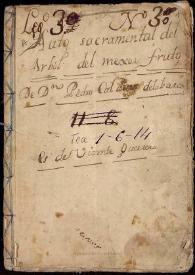 Leg.º 3º Nº 3º
Auto sacramental del
Arbol del mexor fruto
De Dn Pedro Calderon dela barca
Tea 1-6-14
Es de Vicente